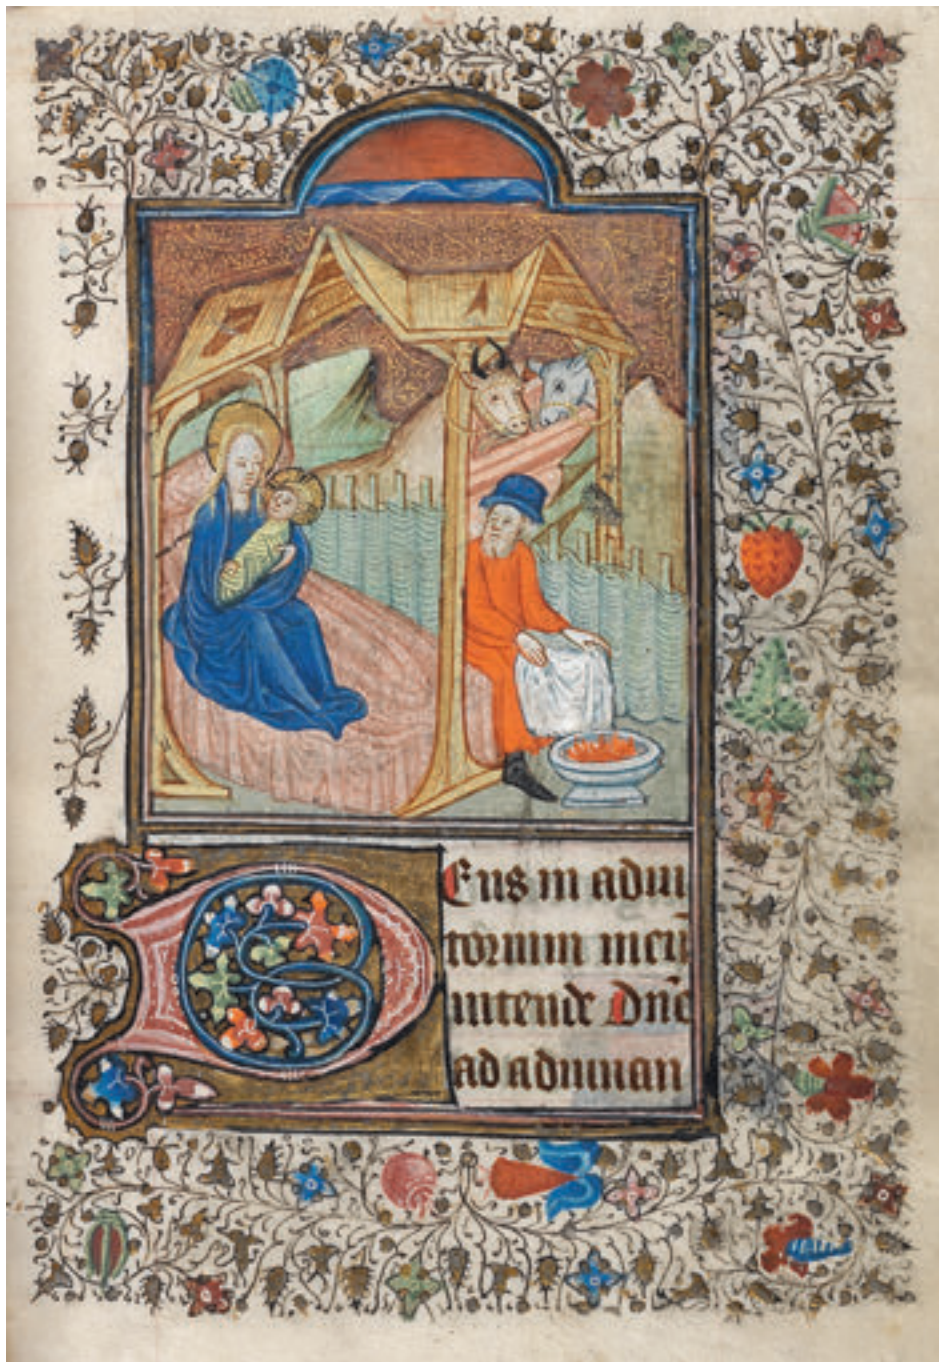 Deus in adiu
torium meū
intende Dn̄e
ad adiuuan